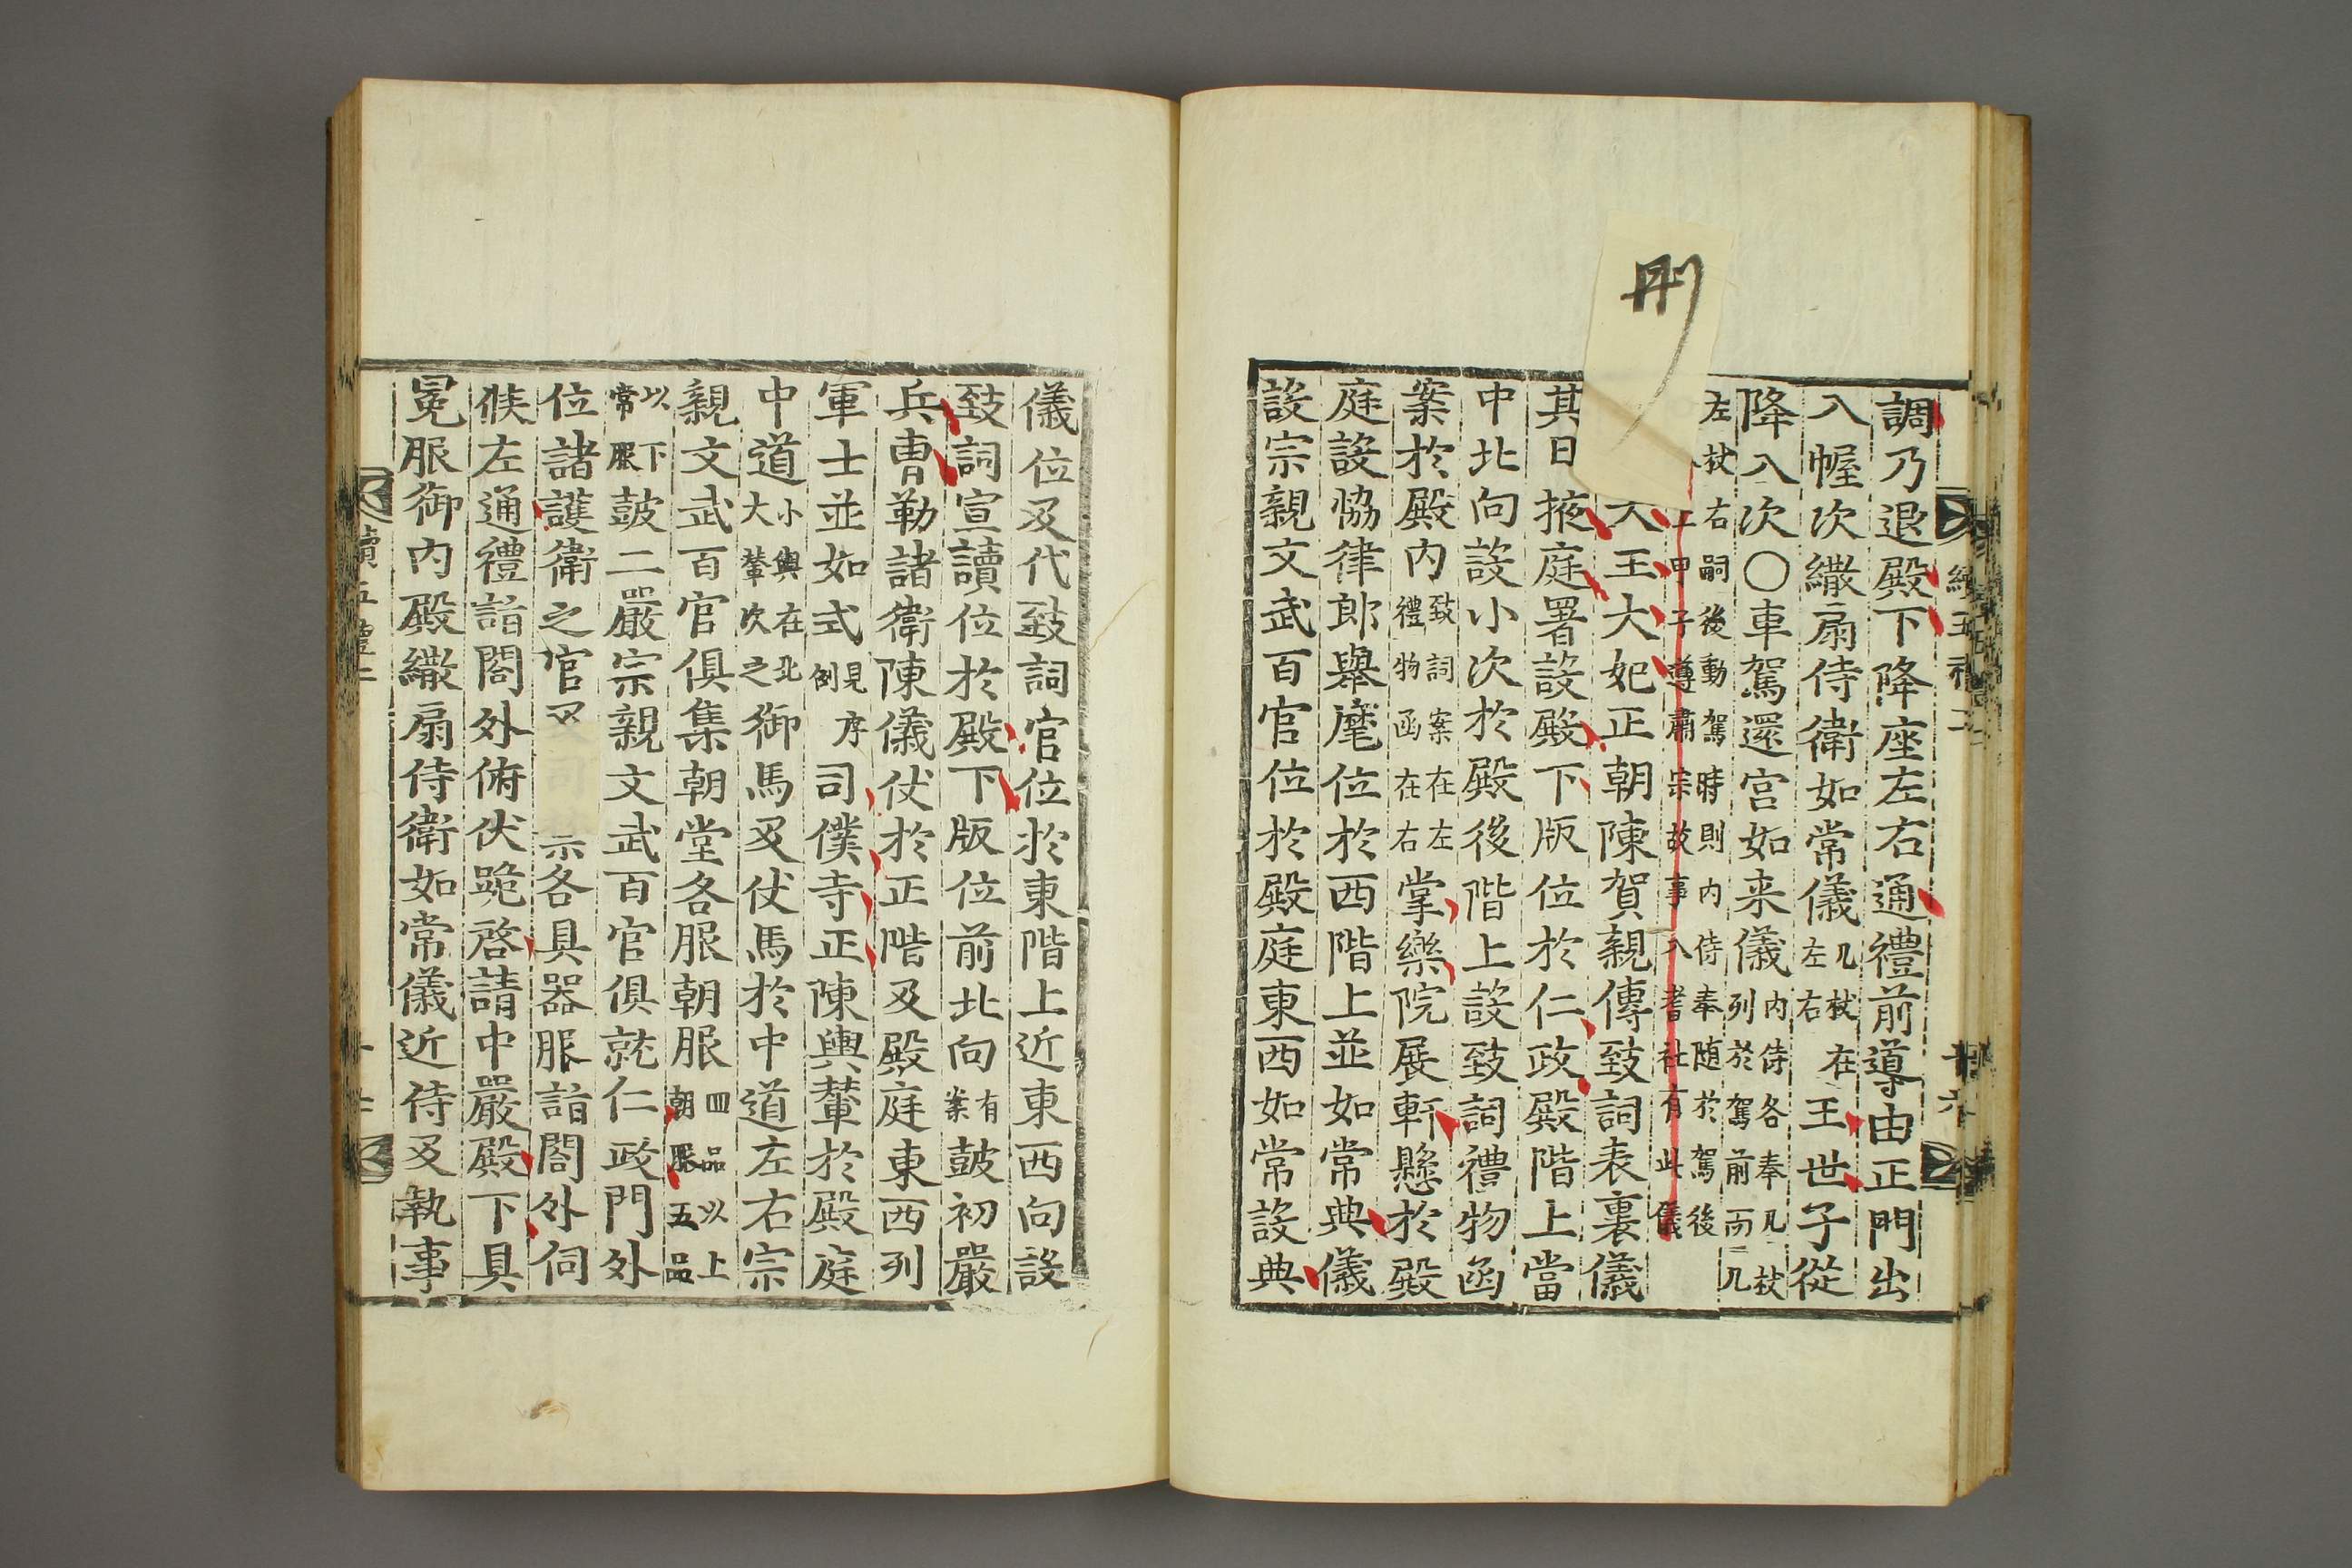 刪
調乃退殿下降座左右通禮前導由正門出
入幄次繖扇侍衛如常儀几杖在左右王世子從
降入次○車駕還宮如来儀内侍各奉几杖列於駕前而几
左杖右嗣後動駕時則内侍奉随於駕後
甲子遵肅宗故事入耆社有此儀
大王大妃正朝陳賀親傳致詞表裏儀
其日掖庭署設殿下版位於仁政殿階上當
中北向設小次於殿後階上設致詞禮物函
案於殿内致詞案在左禮物函在右掌樂院展軒懸於殿
庭設恊律郎舉麾位於西階上並如常典儀
設宗親文武百官位於殿庭東西如常設典
儀位及代致詞官位於東階上近東西向設
致詞宣讀位於殿下版位前北向有案鼓初嚴
兵曹勒諸衛陳儀仗於正階及殿庭東西列
軍士並如式見序例司僕寺正陳輿輦於殿庭
中道小輿在北大輦次之御馬及仗馬於中道左右宗
親文武百官俱集朝堂各服朝服四品以上朝服五品
以下常服鼓二嚴宗親文武百官俱就仁政門外
位諸護衛之官及各具器服詣閤外伺
候左通禮詣閤外俯伏跪啓請中嚴殿下具
冕服御内殿繖扇侍衛如常儀近侍及執事